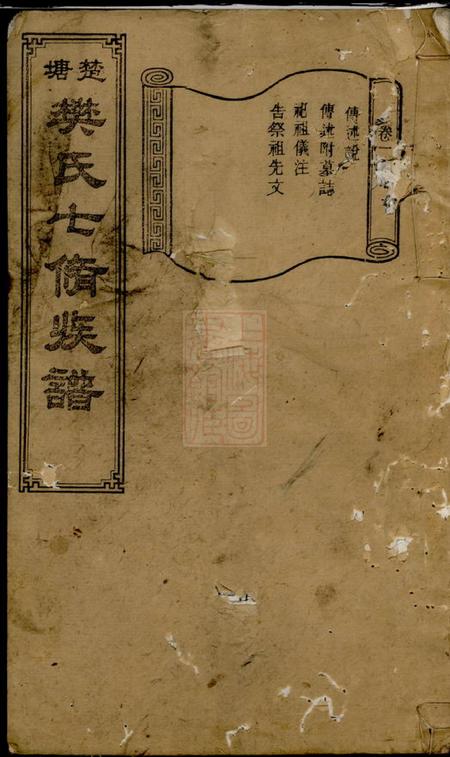 楚塘
樊氏七修族譜
卷一
傳述說
傳述附墓誌
祀祖儀注
告祭祖先文